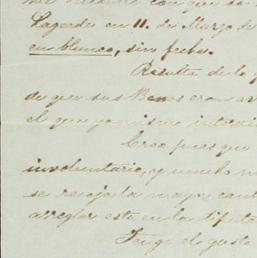 Lagarde en 11. de Marzo de
en blanco, sin fecha.
Resulta de lo
de que sus Bonos eran
el que yo mismo
Creo pues que
involuntario, y mucho
se recoja la mayor cant
arreglar este en la diputa
Tengo el gusto